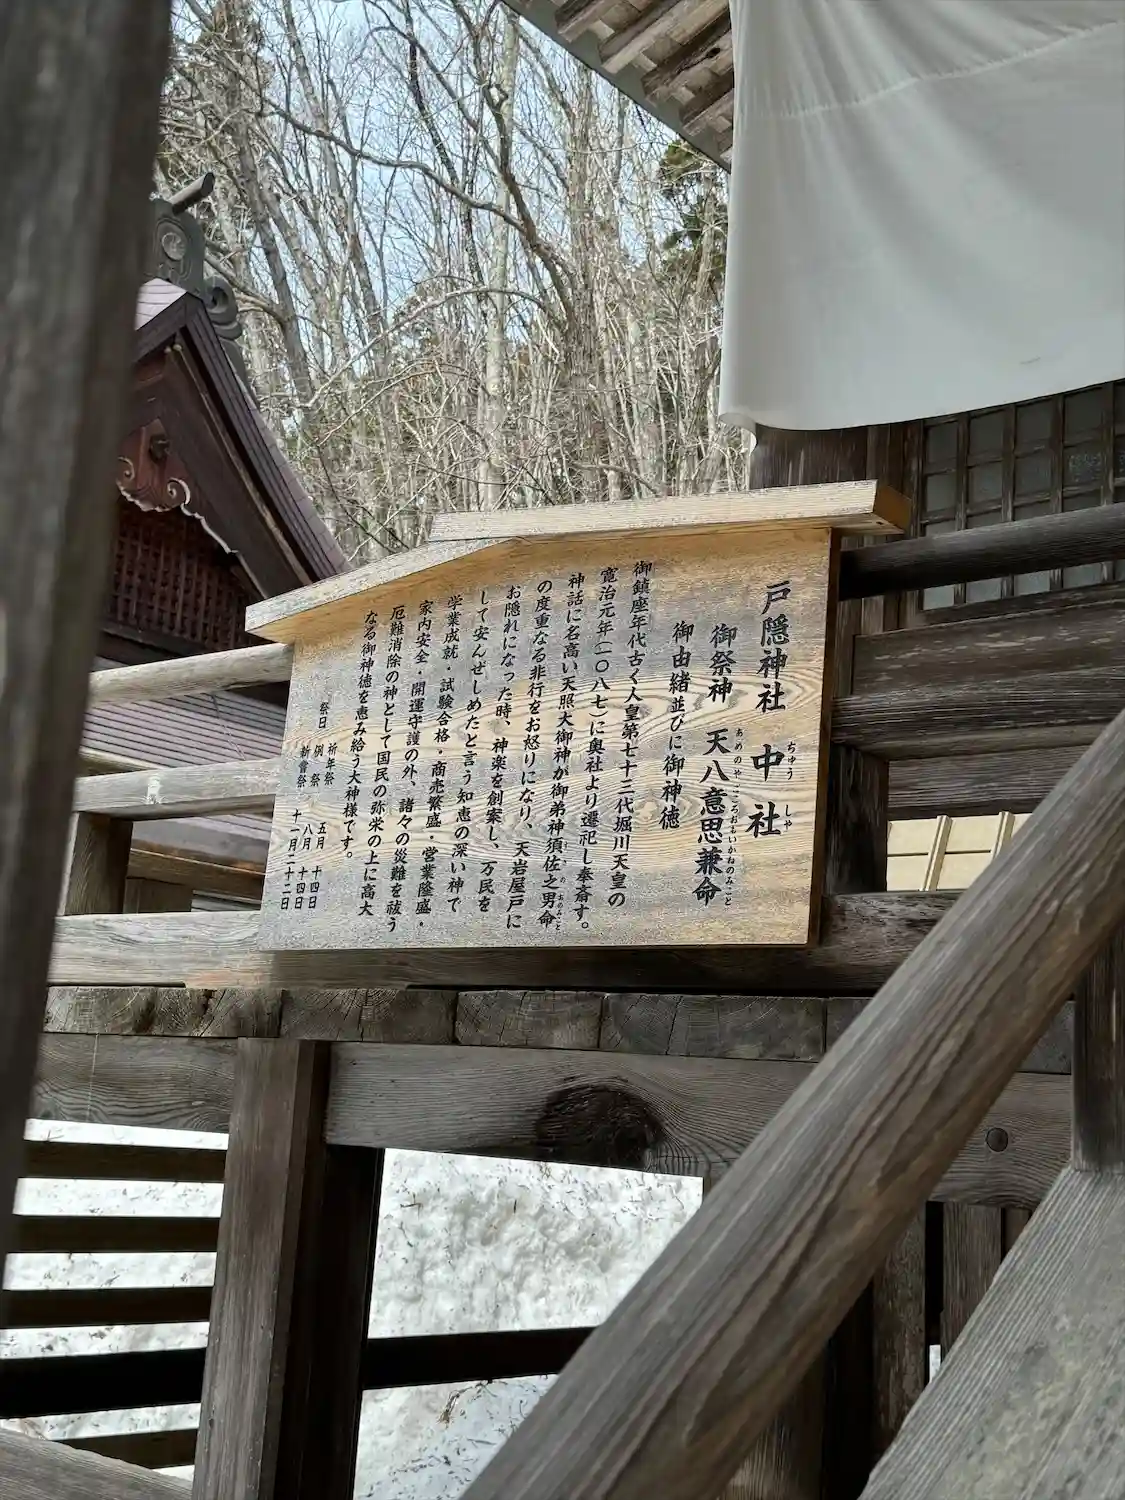 戸隠神社 中社
ちゅう しゃ
御祭神 天八意思兼命
あめのやごころおもいかねのみこと
御由緒並びに御神徳
御鎮座年代古く人皇第七十三代堀川天皇の
寛治元年(一〇八七)に奥社より遷祀し奉斎す。
神話に名高い天照大御神が御弟神須佐之男命
の度重なる非行をお怒りになり、天岩屋戸に
お隠れになった時、神楽を創案し、万民を
して安んぜしめたと言う知恵の深い神で
学業成就・試験合格・商売繁盛・営業隆盛・
家内安全・開運守護の外、諸々の災難を祓う
厄難消除の神として国民の弥栄の上に高大
なる御神徳を恵み給う大神様です。
祭日 祈年祭 五月 十四日
例祭 八月 十四日
新嘗祭 十一月二十二日